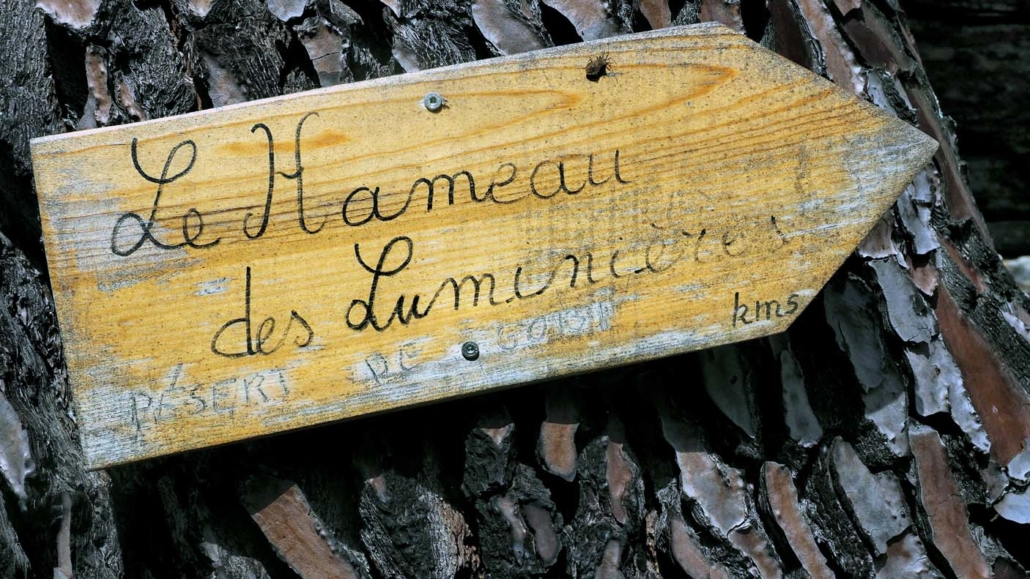 Le Hameau
des Luminières
DÉSERT DE GOBI
kms